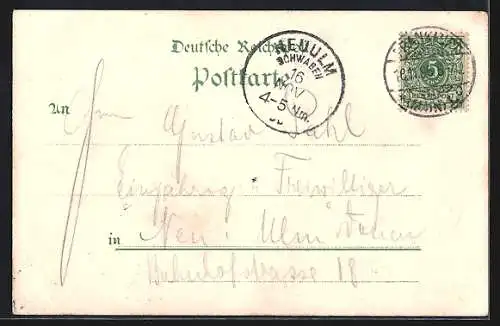 Deutsche Reichspost
Postkarte
NEUULM
SCHWABEN
16
NOV
4-5 Nm.
5
An
Gustav
Einjährig = Freiwilliger
in Neu = Ulm Donau
Bahnhofstrasse 18